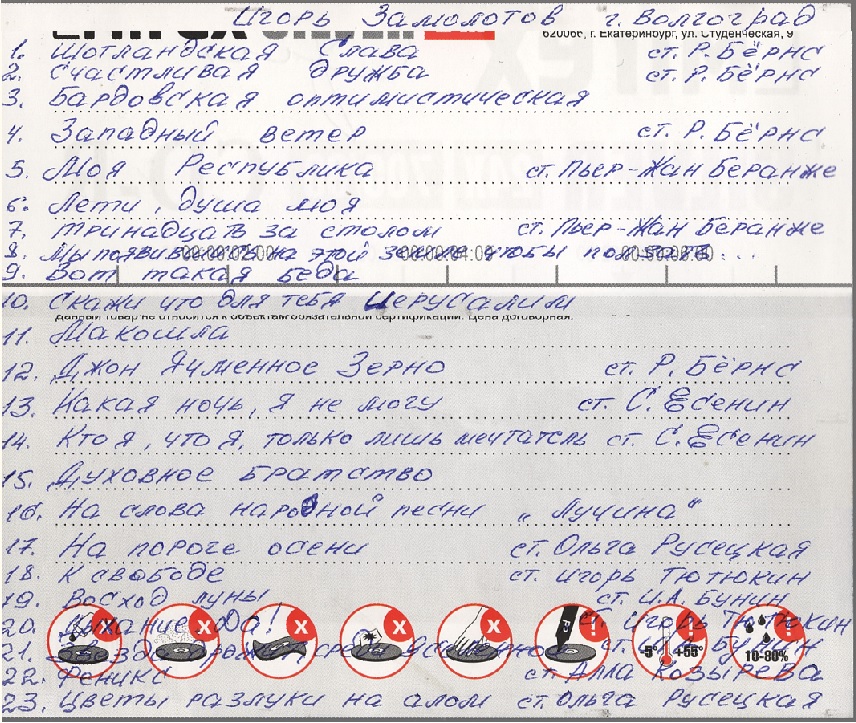 Игорь Замолотов г. Волгоград
620066, г. Екатеринбург, ул. Студенческая, 9
1. Шотландская Слава ст. Р. Бёрнс
2. Счастливая дружба ст. Р. Бёрнс
3. Бардовская оптимистическая
4. Западный ветер ст. Р. Бёрнс
5. Моя Республика ст. Пьер-Жан Беранже
6. Лети, душа моя
7. Тринадцать за столом ст. Пьер-Жан Беранже
8. Мы появились на этой земле чтобы ...
9. Вот такая беда
10. Скажи что для тебя Иерусалим
данный товар не относится к объектам обязательной сертификации. Цена договорная.
11. Макошла
12. Джон Ячменное Зерно ст. Р. Бёрнс
13. Какая ночь, я не могу ст. С. Есенин
14. Кто я, что я, только лишь мечтатель ст. С. Есенин
15. Духовное братство
16. На слова народной песни „Лучина“
17. На пороге осени ст. Ольга Русецкая
18. К свободе ст. Игорь Тютюкин
19. Восход луны ст. И.А. Бунин
20. Дыхание До! ст. Игорь Тютюкин
21. среди ст. Бунин
-5° +55° 10-80%
22. Феникс ст. Алла Козырева
23. Цветы разлуки на алом ст. Ольга Русецкая